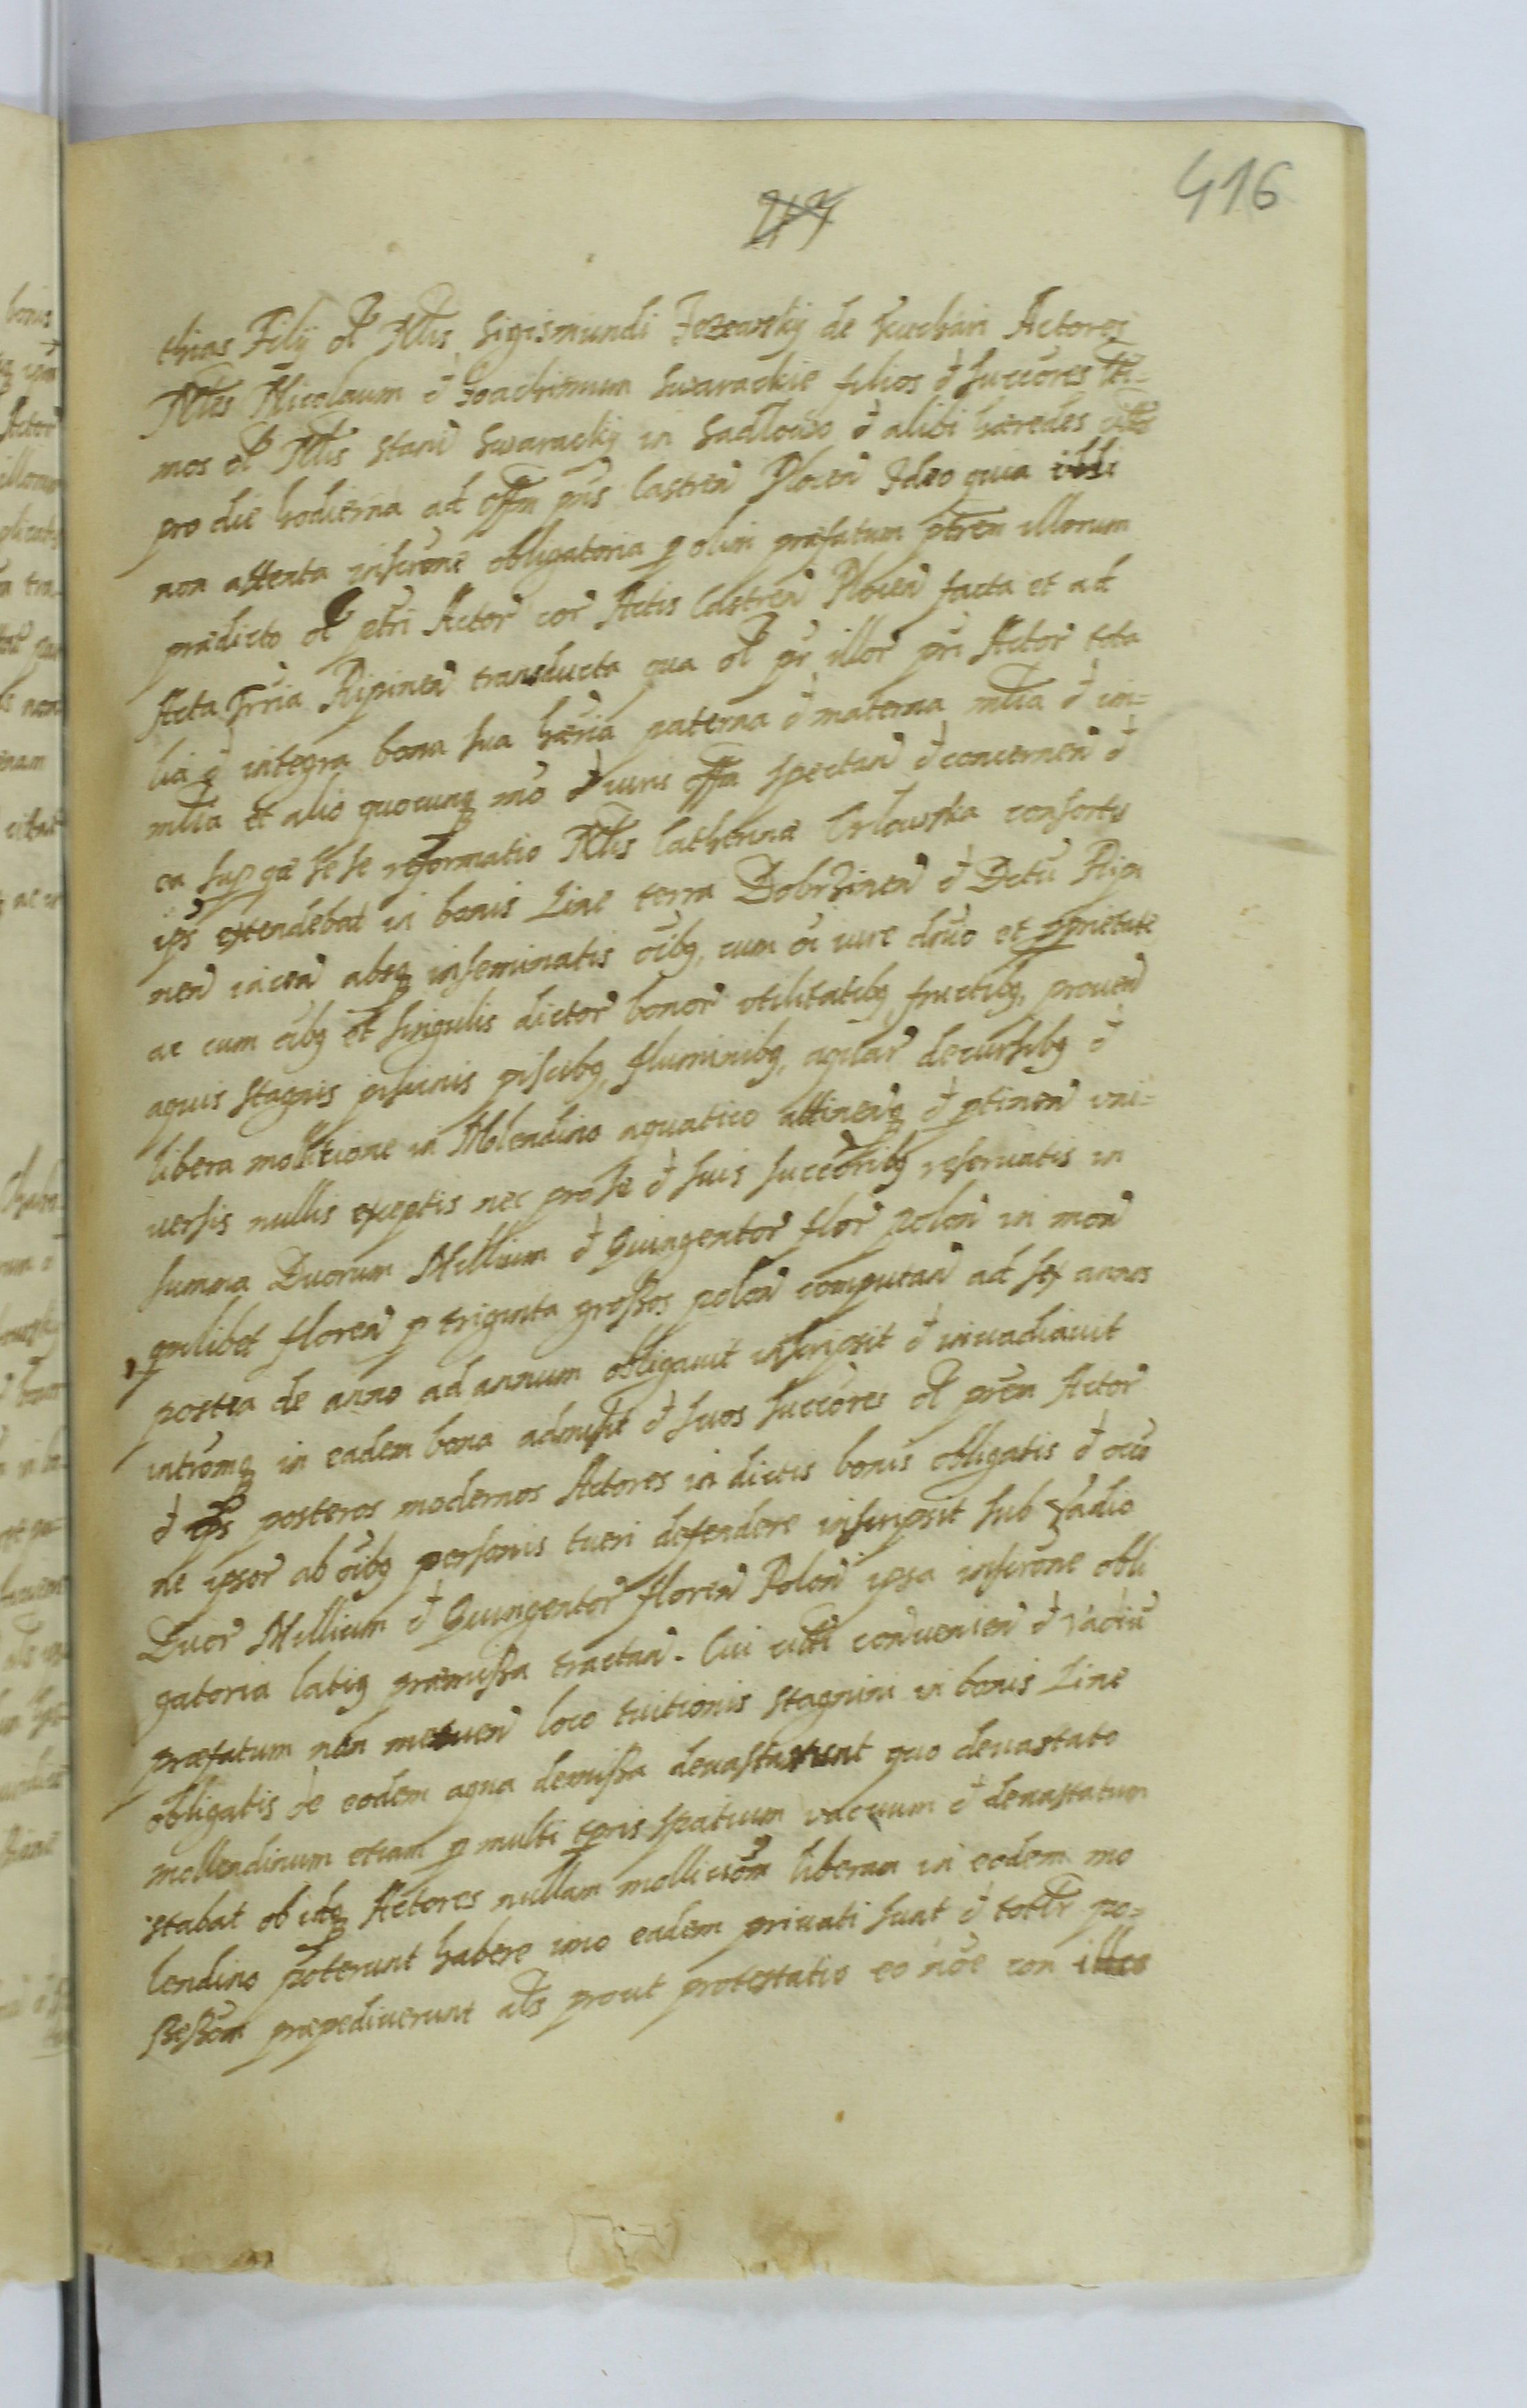 416
thias Filij ol Nlis Sigismundi Jezewskij de Kuchari Actores
Nles Nicolaum et Joachimum Swarackie filios et succores
mos ol Nlis Stani Swarackij in Sadlowo et alibi hæredes
pro die hodierna ad offm pns Castren Plocen Ideo quia illi
non attenta inscrone obligatoria p olim præfatum ptrem illorum
prædicto ol ptri Actor cor Actis Castren Plocen facta et ad
Acta Trria Ripinen transducta qua ol pr illor pri Actor tota
lia et integra bona sua hæria paterna et maternа mlia et in=
mlia et alio quocunq mo et iuris offm spectan et concernen et
ea sup quæ sese reformatio Nlis Catherinæ Orlowska consortis
ips extendebat in bonis Line terra Dobrzinen et Dctu Ripi
nen iacen absq inseminatis oibq, cum oi iure dnio et pprietate
ac cum oibq et singulis dictor bonor utilitatibq fructibq, prouen
aquis stagnis piscinis piscibq, fluminibq, aquar decursibq et
libera molitione in Molendino aquatico attinenq et ptinen uni=
uersis nullis exceptis nec pro se et suis succoribq reseruatis in
summa Duorum Millium et Quingentor flor polon in mon
quilibet floren p triginta grossos polon computan ad sex annos
postea de anno ad annum obligauit inscripsit et inuadiauit
intromq in eadem bona admisit et suos succores ol prem Actor
et ips posteros modernos Actores in dictis bonis obligatis et occu
ne ipsor ab oibq personis tueri defendere inscripsit sub vadio
Duor Millium et Quingentor floren Polon ipsa inscrone obli
gatoria latiq præmissa tractan. Cui citti conuenien et vadiu
præfatum non metuen loco tuitionis stagnum in bonis Line
obligatis de eodem aqua demissa deuastarunt quo deuastato
mollendinum etiam p multi tpris spatium vacuum et deuastatum
stabat ob idq Actores nullam mollicom liberam in eodem mo
lendino poterunt habere imo eadem priuati sunt et totlr po=
ssessom præpediuerunt als prout protestatio eo noe con illos